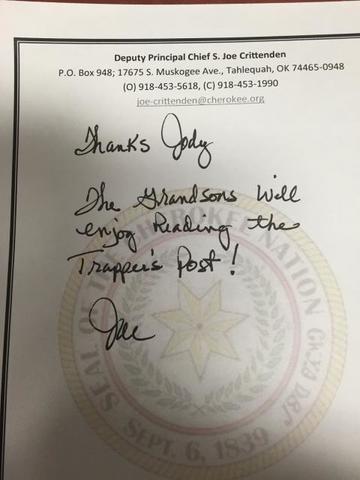 Deputy Principal Chief S. Joe Crittenden
P.O. Box 948; 17675 S. Muskogee Ave., Tahlequah, OK 74465-0948
(O) 918-453-5618, (C) 918-453-1990
joe-crittenden@cherokee.org
Thanks Jody
The Grandsons Will
enjoy Reading the
Trapper's Post!
Joe
SEAL OF THE CHEROKEE NATION
SEPT. 6, 1839